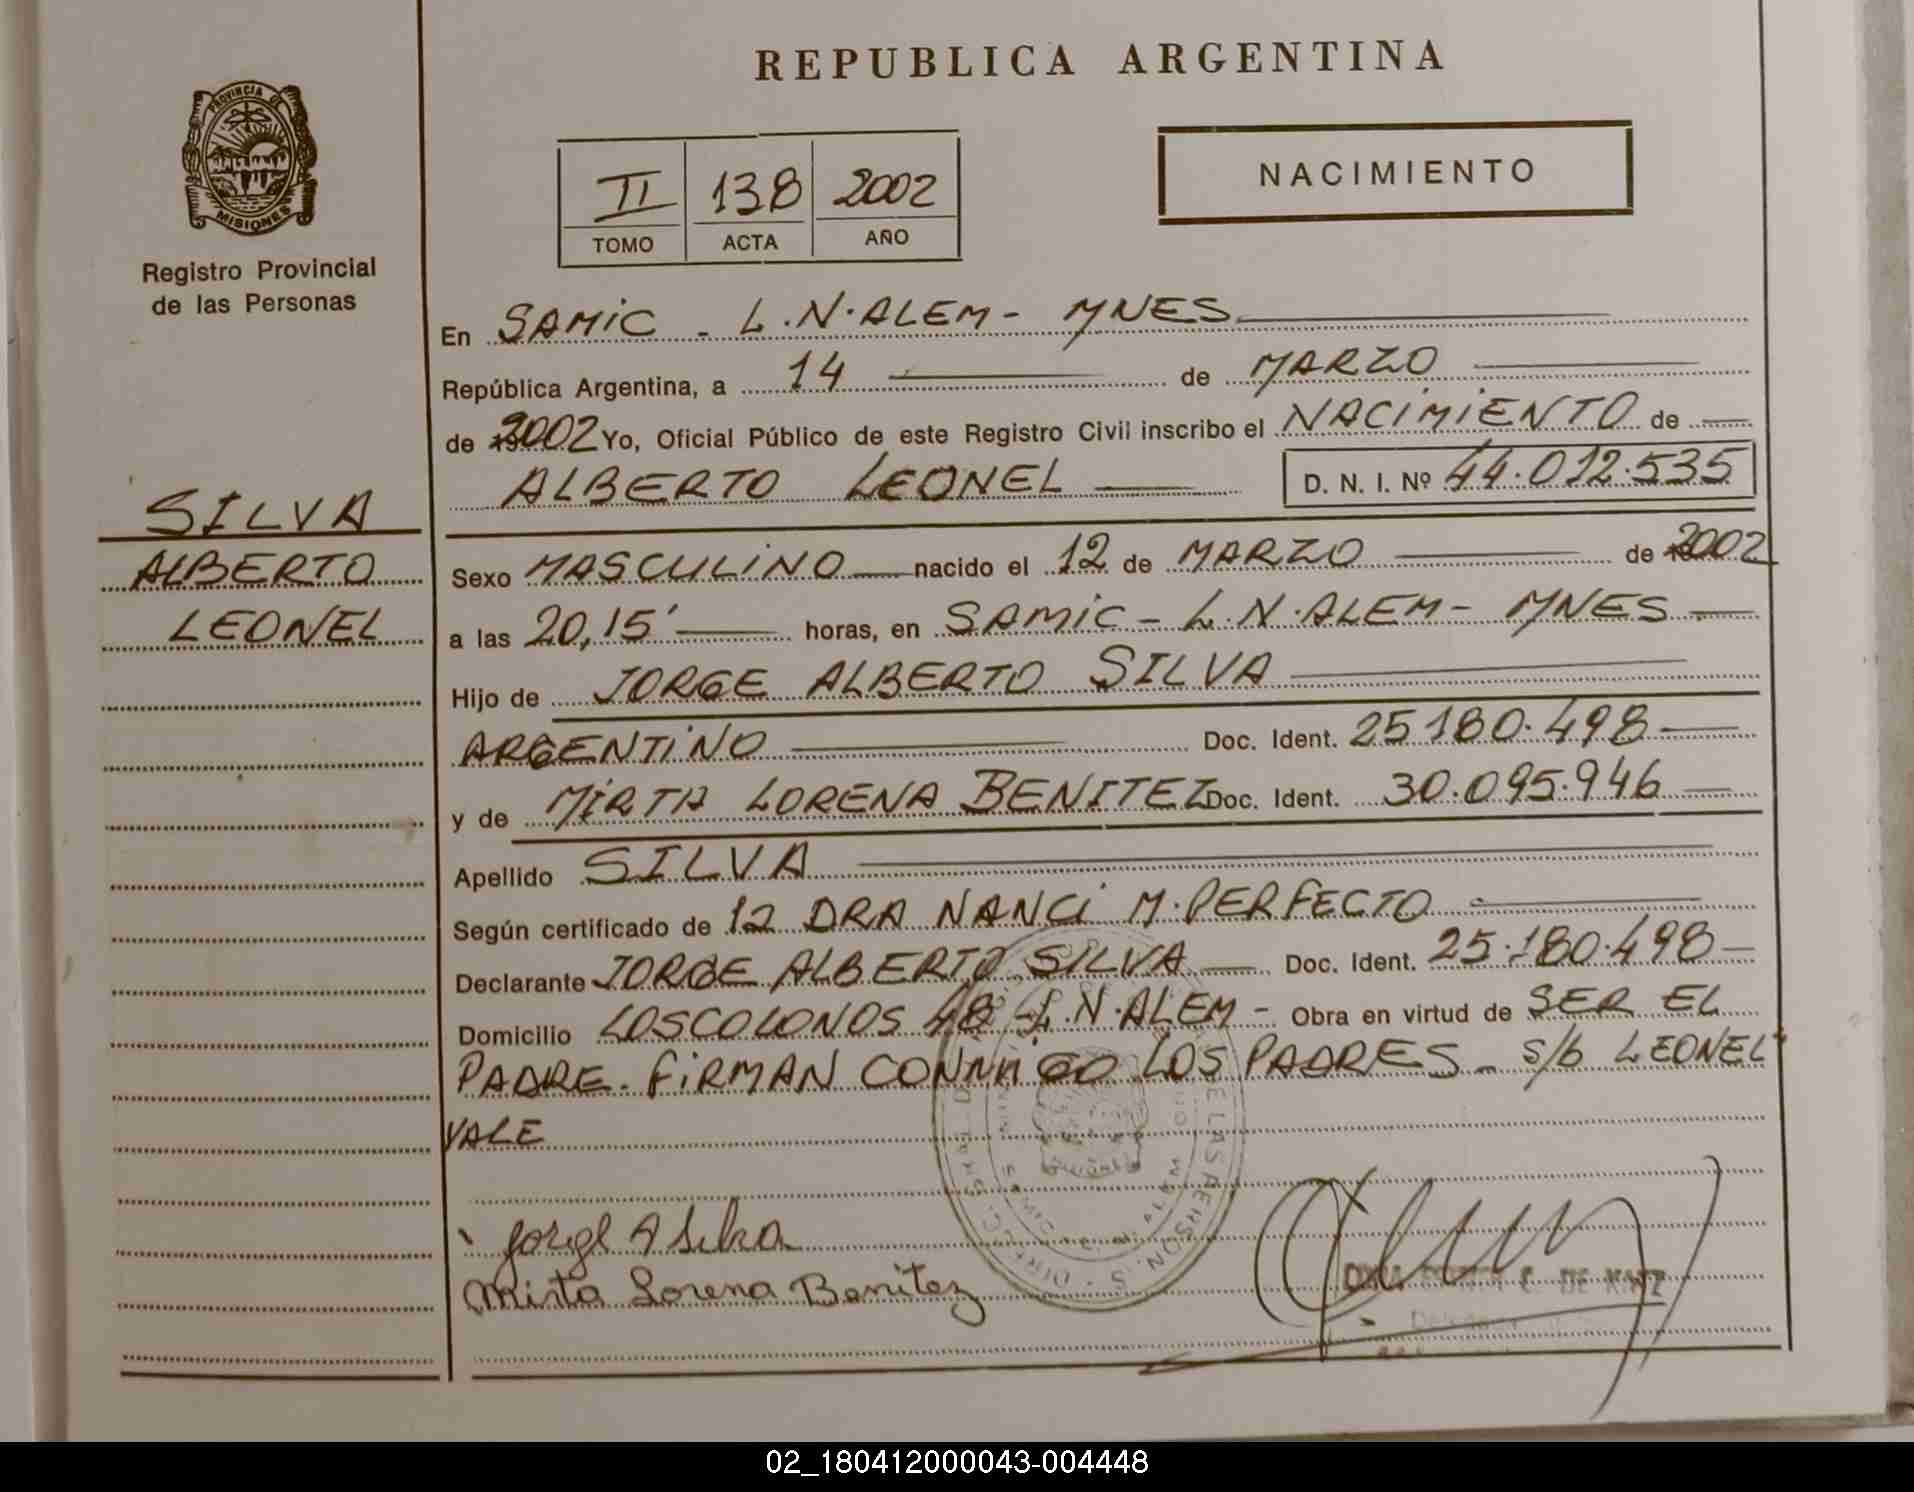 REPUBLICA ARGENTINA
PROVINCIA DE
MISIONES
Registro Provincial
de las Personas
II 138 2002
TOMO ACTA AÑO
NACIMIENTO
En SAMIC - L.N.ALEM - MNES
República Argentina, a 14 de MARZO
de 2002 Yo, Oficial Público de este Registro Civil inscribo el NACIMIENTO de
ALBERTO LEONEL D. N. I. Nº 44.012.535
SILVA
ALBERTO
LEONEL
Sexo MASCULINO nacido el 12 de MARZO de 2002
a las 20,15' horas, en SAMIC - L.N.ALEM - MNES
Hijo de JORGE ALBERTO SILVA
ARGENTINO Doc. Ident. 25180.498
y de MIRTA LORENA BENITEZ Doc. Ident. 30.095.946
Apellido SILVA
Según certificado de 12 DRA NANCI M. PERFECTO
Declarante JORGE ALBERTO SILVA Doc. Ident. 25.180.498
Domicilio LOSCOLONOS 48 - L.N.ALEM - Obra en virtud de SER EL
PADRE. FIRMAN CONMIGO LOS PADRES - S/b LEONEL"
VALE
Jorge A Silva
Mirta Lorena Benitez
C. DE
02_180412000043-004448